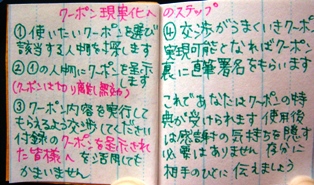 クーポン現実化へのステップ
①使いたいクーポンを選び
該当する人物を探します
②①の人物にクーポンを呈示
します
(クーポンは切り離し無効)
③クーポン内容を実行して
もらえるよう交渉してください
付録のクーポンを呈示され
た皆様へを活用しても
かまいません
④交渉がうまくいきクーポン
実現可能となればクーポン
裏に直筆署名をもらいます
これであなたはクーポンの特
典が受けられます 使用後
は感謝の気持ちを隠す
必要はありません 存分に
相手のひとに伝えましょう